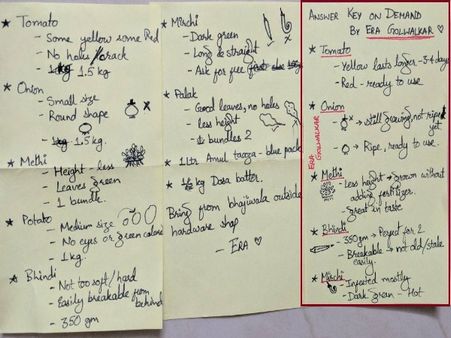 ★ Tomato
- Some yellow some Red
- No holes/crack
- 1 kg 1.5 kg
★ Onion
- Small size
- Round shape
- 1 kg 1.5 kg.
★ Methi
- Height - less
- Leaves green
- 1 bundle.
★ Potato
- Medium size
- No eyes or green colored
- 1 kg.
★ Bhindi
- Not too soft/hard
- Easily breakable from behind
- 350 gm
★ Mirchi
- Dark green
- Long & straight
- Ask for free
★ Palak
- Good leaves, no holes
- less height
- 2 bundles
★ 1 ltr Amul taaza - blue pack
★ 1/2 kg Dosa batter.
Bring from bhajiwala outside
hardware shop
- ERA ♡
ANSWER KEY ON DEMAND
BY ERA GOLWALKAR ♡
★ Tomato
- Yellow lasts longer - 3-4 days
- Red - ready to use
★ Onion
→ still growing, not ripe yet
→ Ripe, ready to use.
★ Methi
- Less height → grown without
adding fertilizer.
Great in taste
★ Bhindi
- 350 gm → Perfect for 2
- Breakable → not old/stale
easily.
★ Mirchi
- Infected mostly
- Dark green - Hot
ERA GOLWALKAR